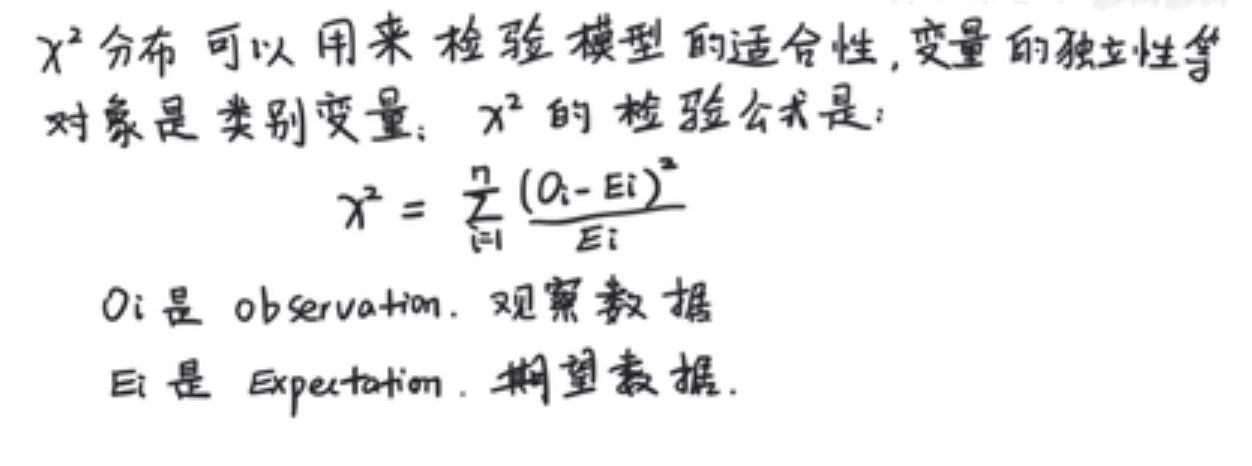 χ² 分布 可以 用来 检验 模型 的适合性,变量 的独立性等
对象是 类别变量; χ² 的 检验公式是:
χ² = ∑_{i=1}^{n} (Oi - Ei)² / Ei
Oi 是 observation. 观察数据
Ei 是 Expectation. 期望数据.